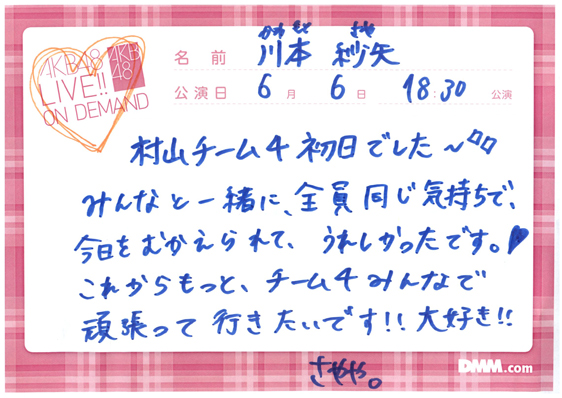 かわ もと さや
AKB48
LIVE!!
ON DEMAND
AKB
48
名 前 川本 紗矢
公演日 6 月 6 日 18:30 公演
村山チーム4 初日でした〜
みんなと一緒に、全員同じ気持ちで、
今日をむかえられて、うれしかったです。♥
これからもっと、チーム4みんなで
頑張って行きたいです!!大好き!!
さやや。
DMM.com